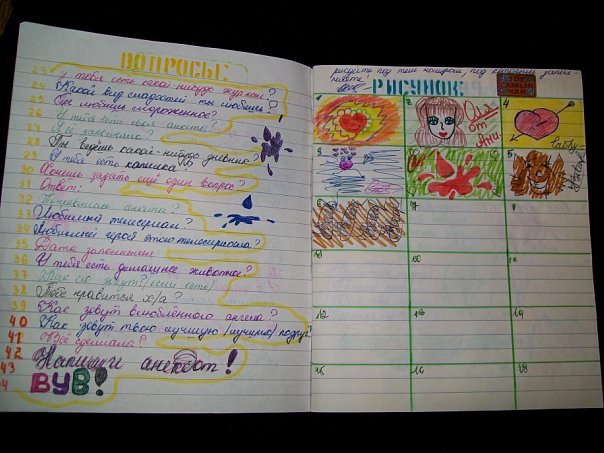 ВОПРОСЫ:
23 У тебя есть какой-нибудь журнал?
24 Какой вид сладостей ты любишь?
25 Ты любишь мороженное?
26 У тебя есть своя анкета?
27
28 Ты ведёшь какой-нибудь дневник?
29 У тебя есть копилка?
30 Хочешь задать ещё один вопрос?
31 Ответ:
32 Понравилась анкета?
33 Любимый телесериал?
34 Любимый герой этого телесериала?
35 Дата заполнения
36 У тебя есть домашнее животное?
37 Как его зовут? (если есть)
38 Тебе нравится х/а?
39 Как зовут влюблённого ангела?
40 Как зовут твою лучшую (лучших) подруг?
41 Всё сделала?
42 Напиши анекдот!
43 ВУВ!
рисуйте под тем номером, под которым
РИСУНОК:
1 2 4
Оля от Ани
3 6 5
7 8
10
12 13
16